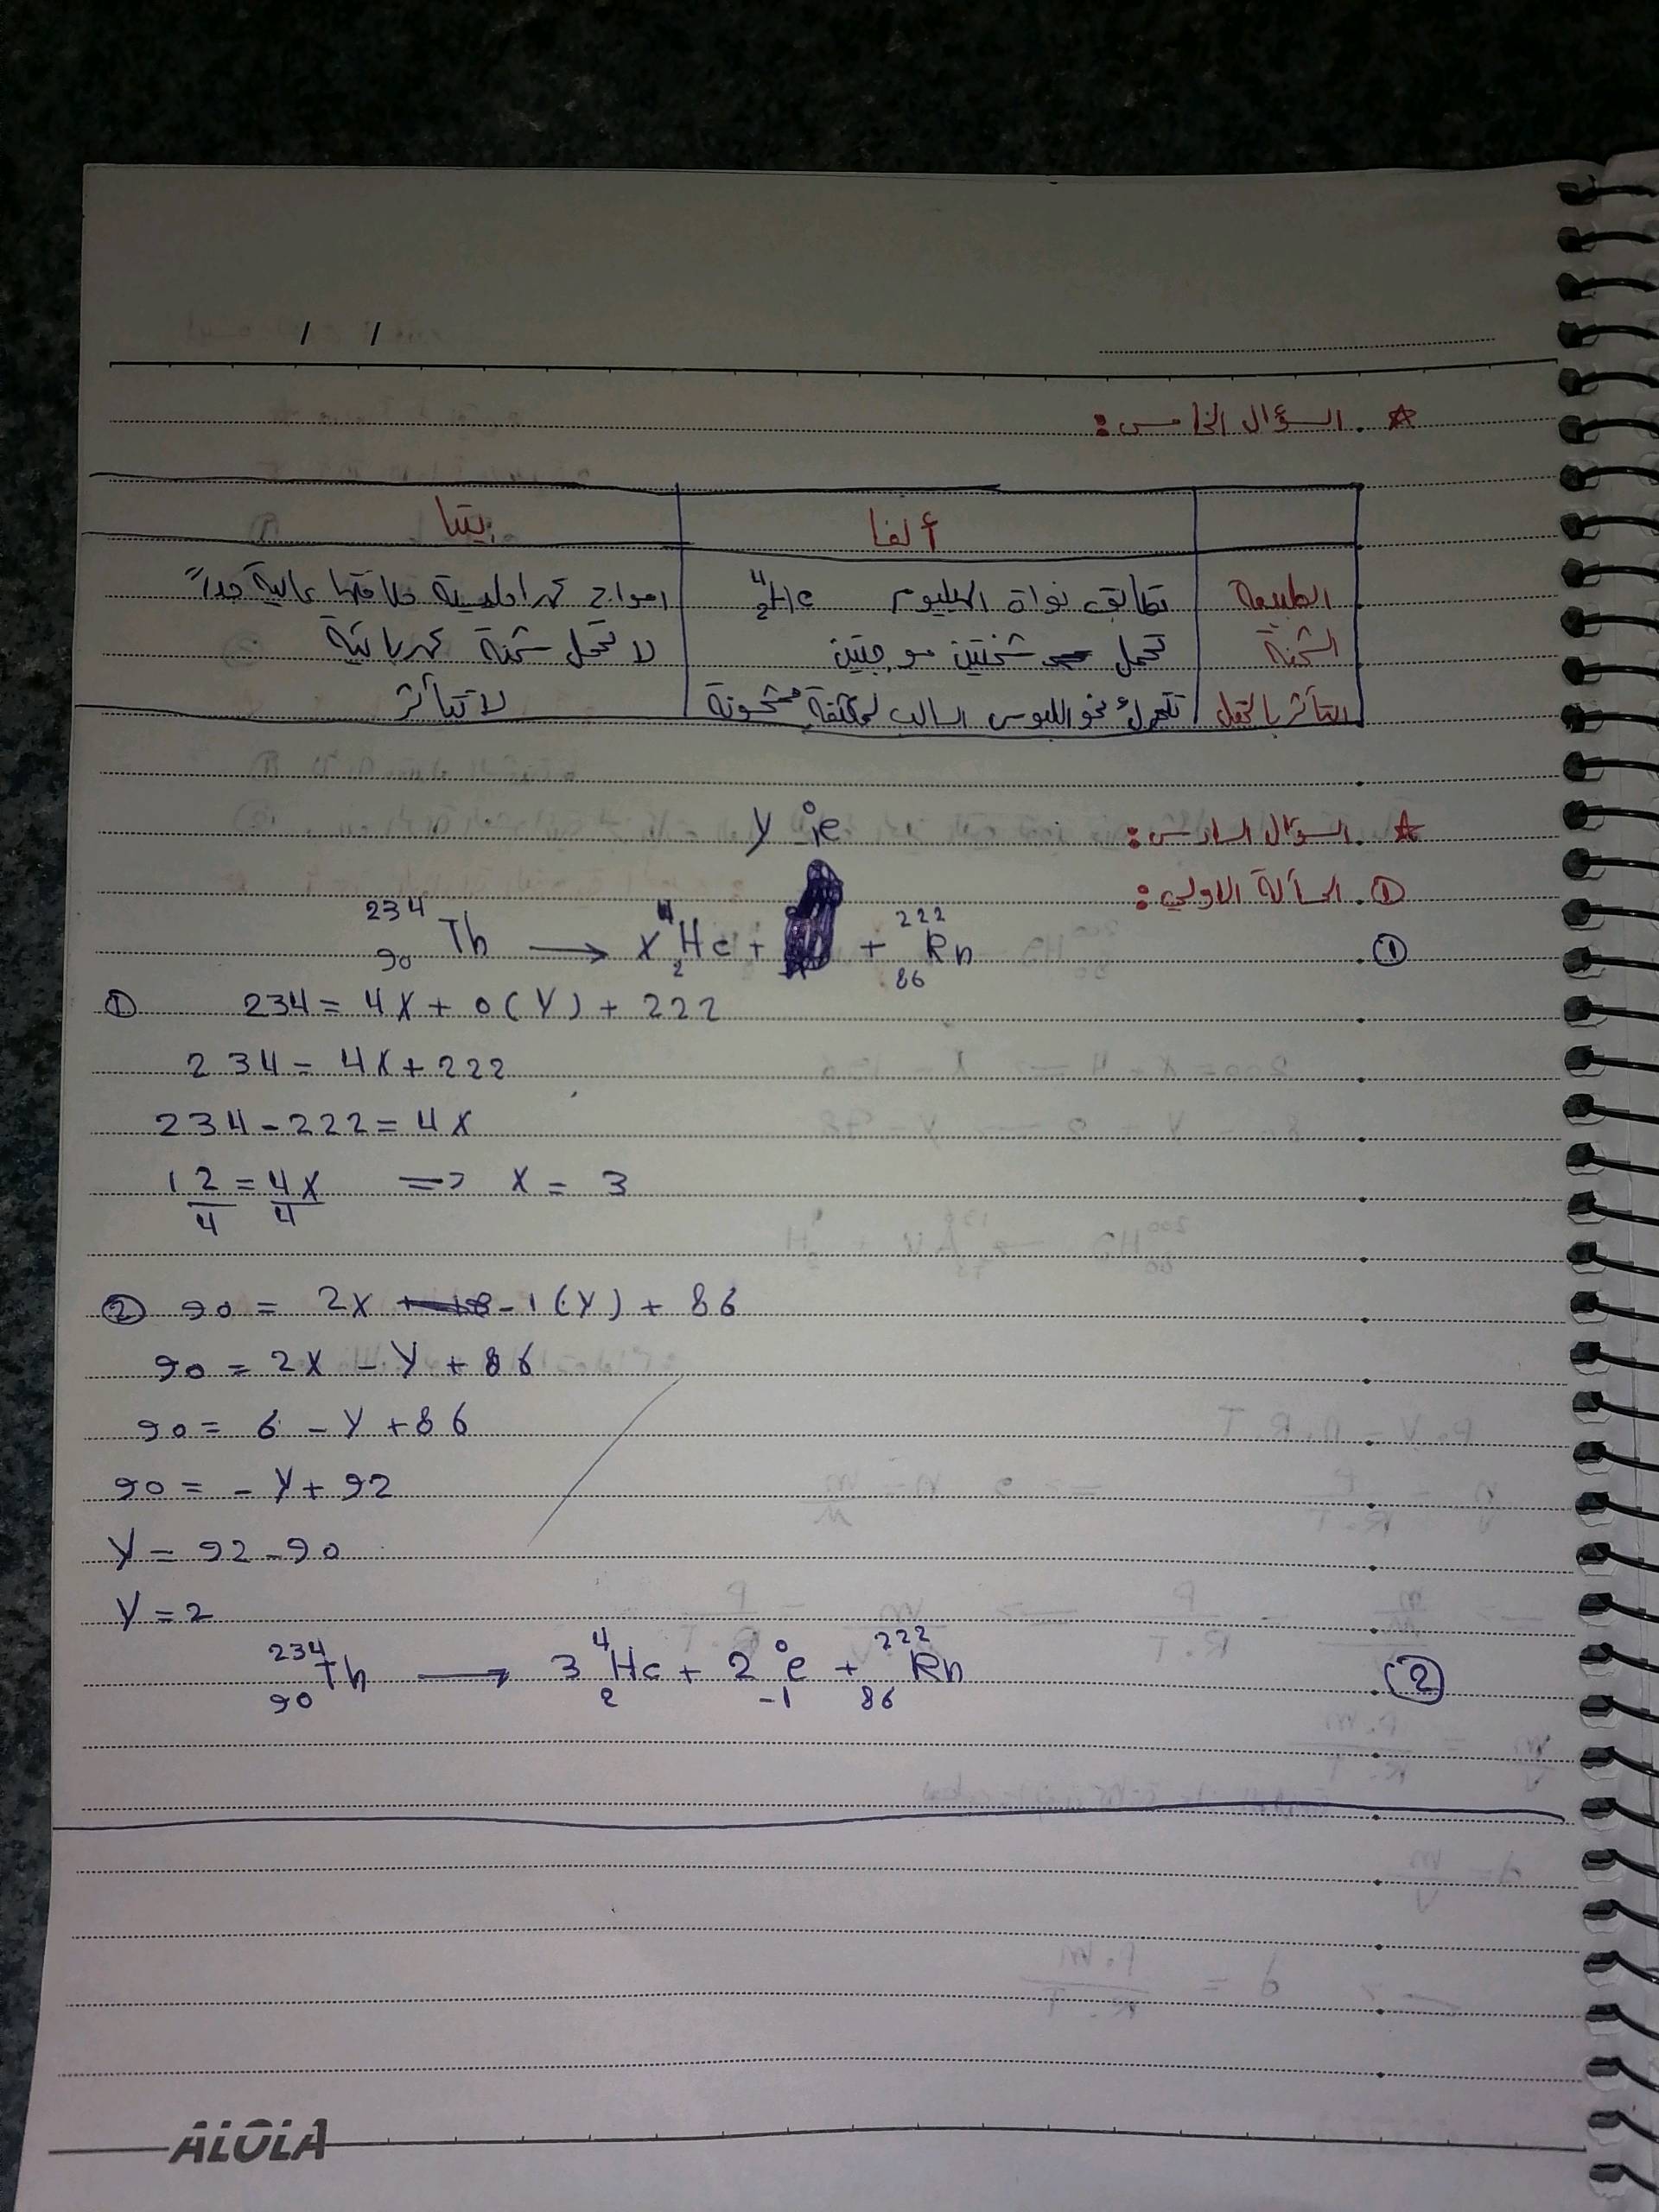 / /
☆ السؤال الخامس:
ألفا بيتا
الطبيعة تطابق نواة الهيليوم ⁴₂He امواج كهراطيسية طاقتها عالية جداً
الشحنة تحمل شحنتين موجبتين لا تحمل شحنة كهربائية
التأثر بالحقل تنحرف نحو اللبوس السالب لمكثفة مشحونة لا تتأثر
☆ السؤال السادس:
y ⁰₋₁e
① المسألة الاولى:
① ²³⁴₉₀Th → x ⁴₂He + + ²²²₈₆Rn
① 234 = 4x + 0(y) + 222
234 = 4x + 222
234 - 222 = 4x
12/4 = 4x/4 => x = 3
② 90 = 2x - 1(y) + 86
90 = 2x - y + 86
90 = 6 - y + 86
90 = - y + 92
y = 92 - 90
y = 2
② ²³⁴₉₀Th → 3 ⁴₂He + 2 ⁰₋₁e + ²²²₈₆Rn
ALOLA